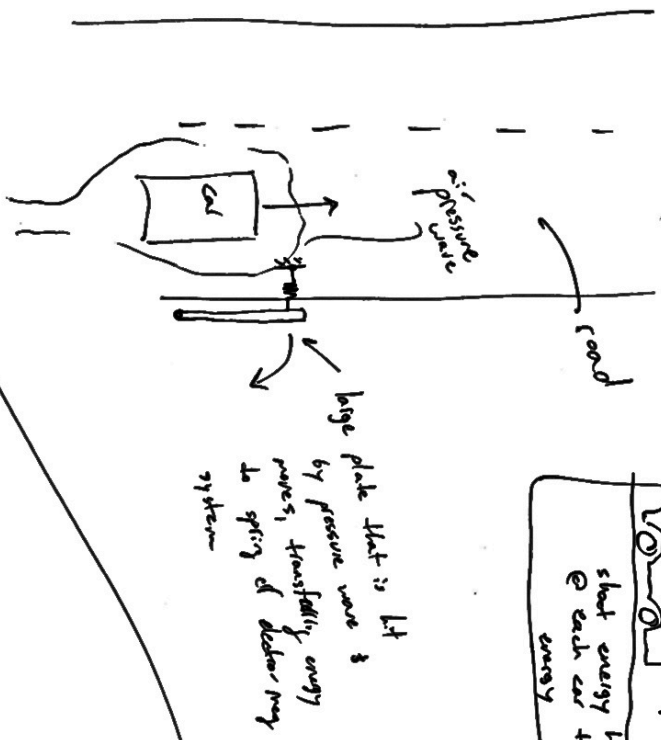 car
air
pressure
wave
road
large plate that is hit
by pressure wave &
moves, transferring energy
to spring or electromag
system
shoot energy
@ each car
energy